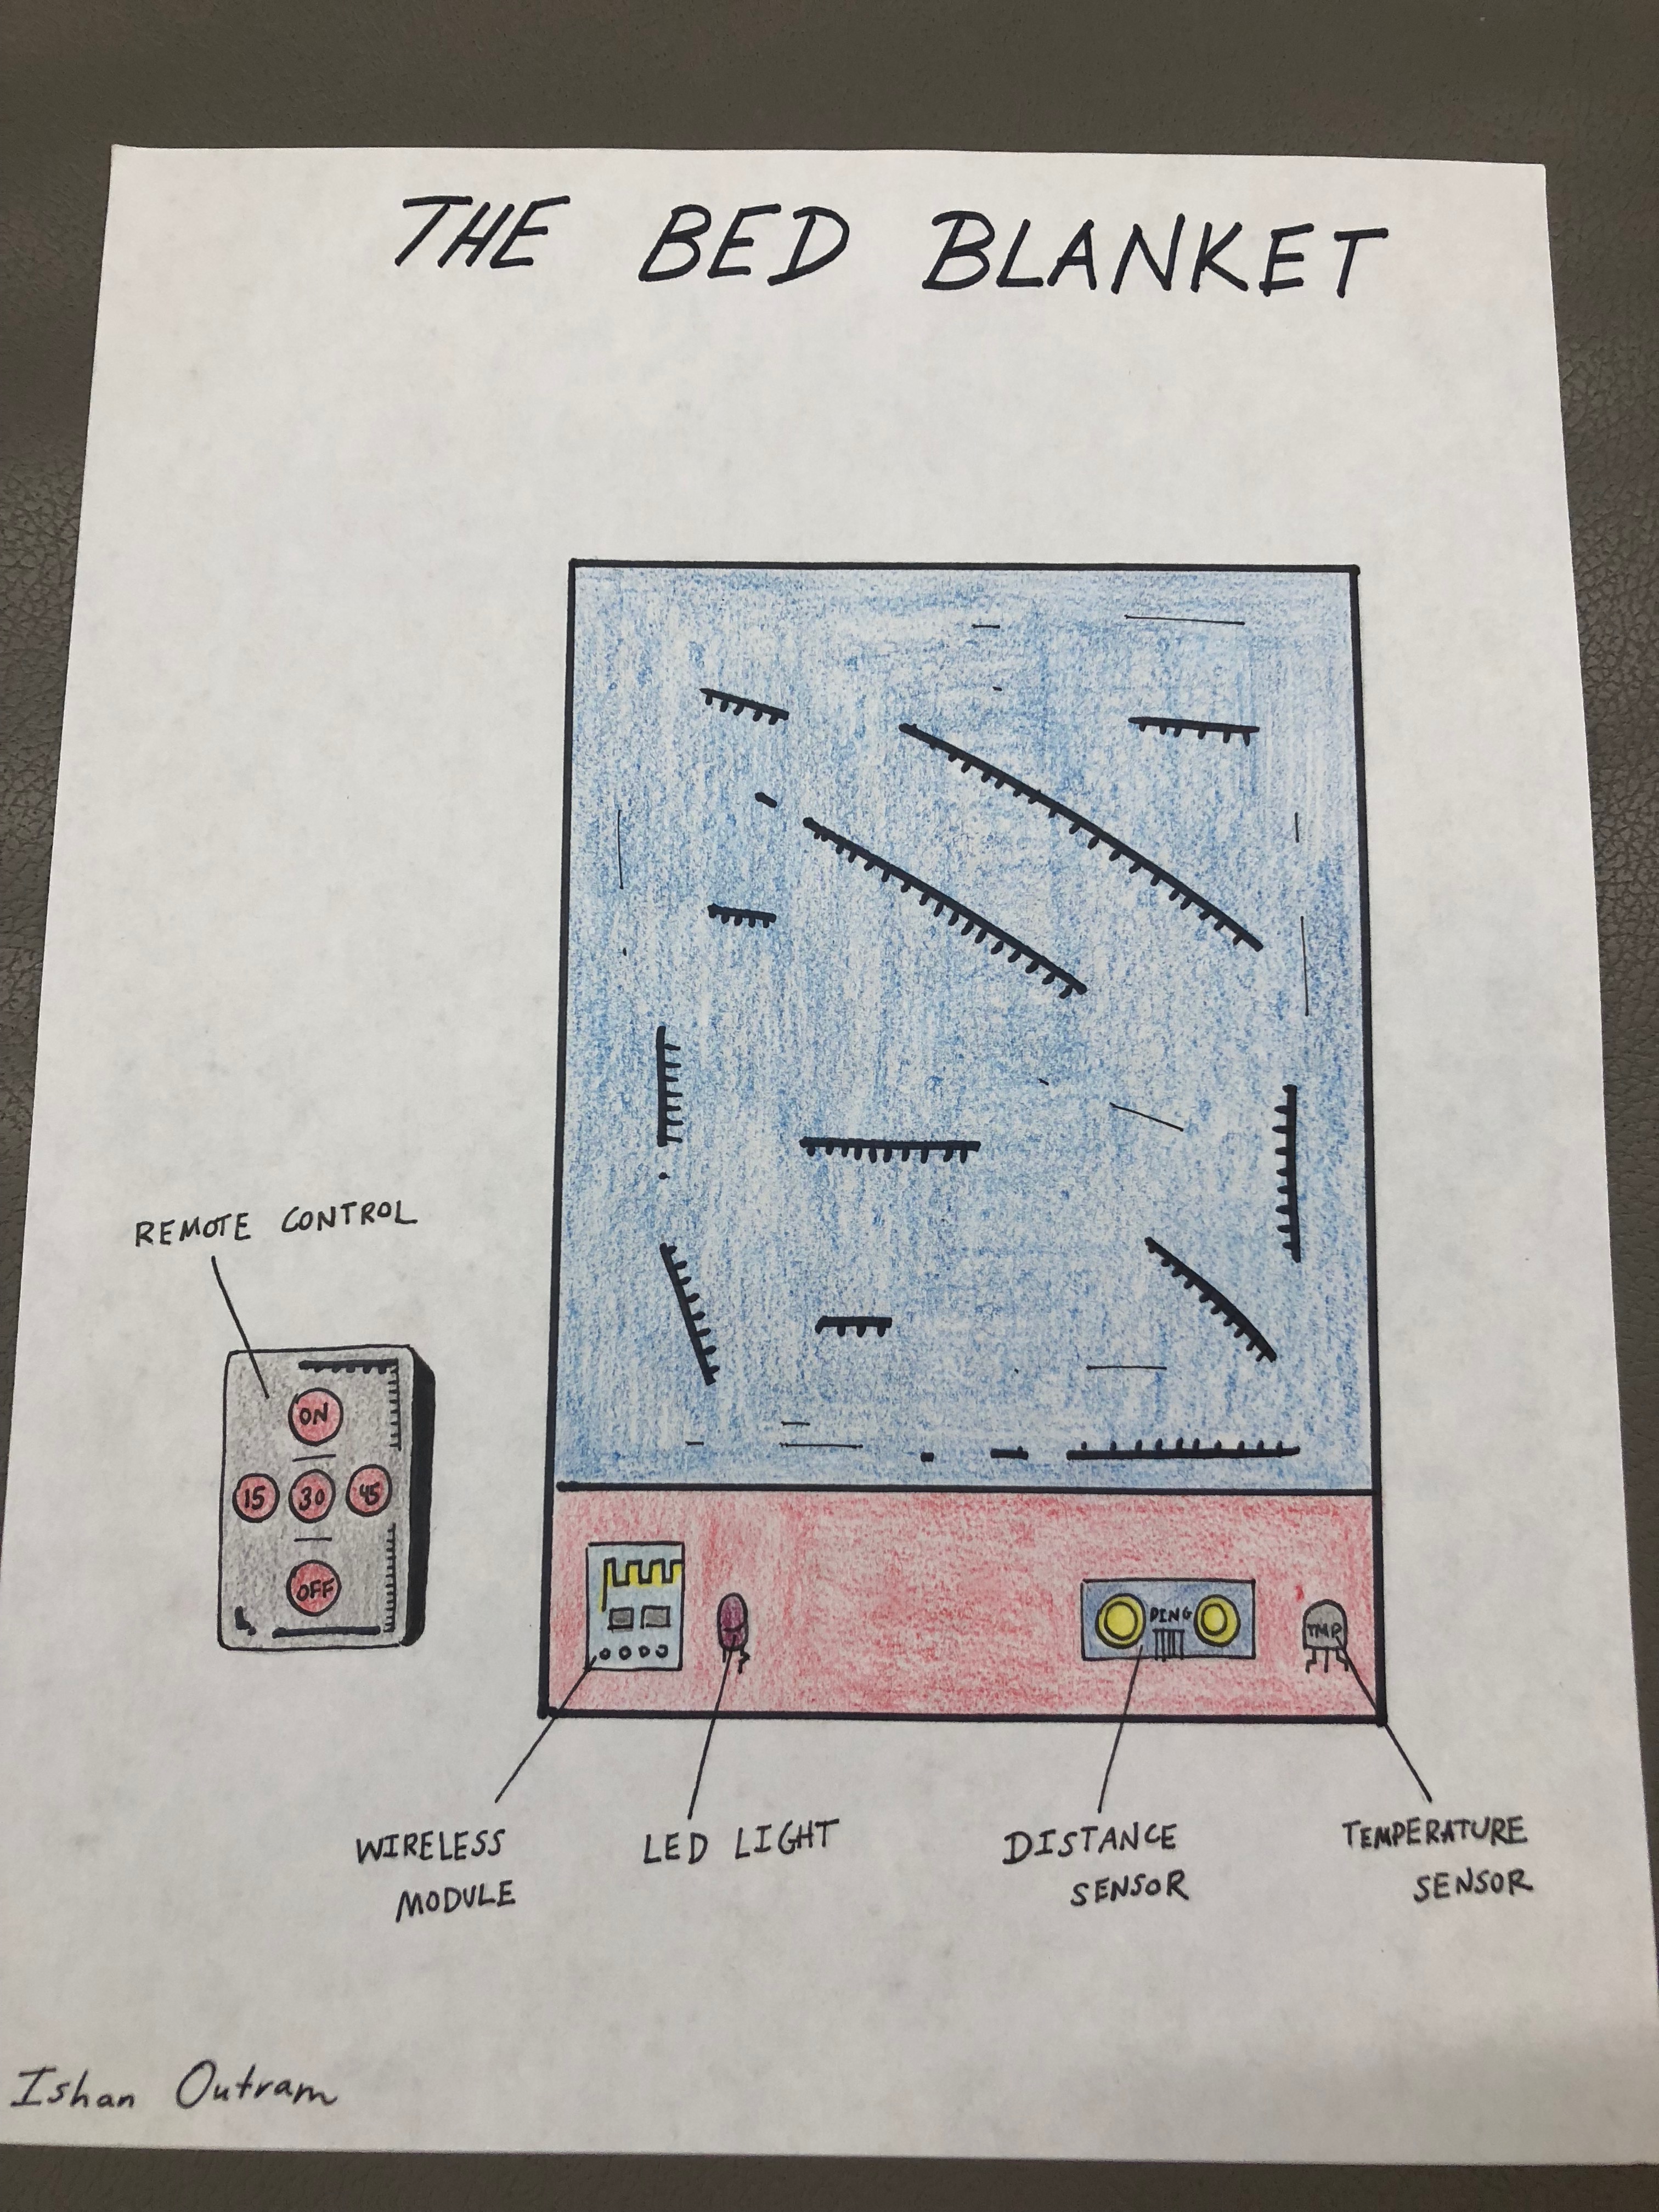 THE BED BLANKET
REMOTE CONTROL
ON
15 30 45
OFF
PING
TMP
WIRELESS
MODULE
LED LIGHT
DISTANCE
SENSOR
TEMPERATURE
SENSOR
Ishan Outram